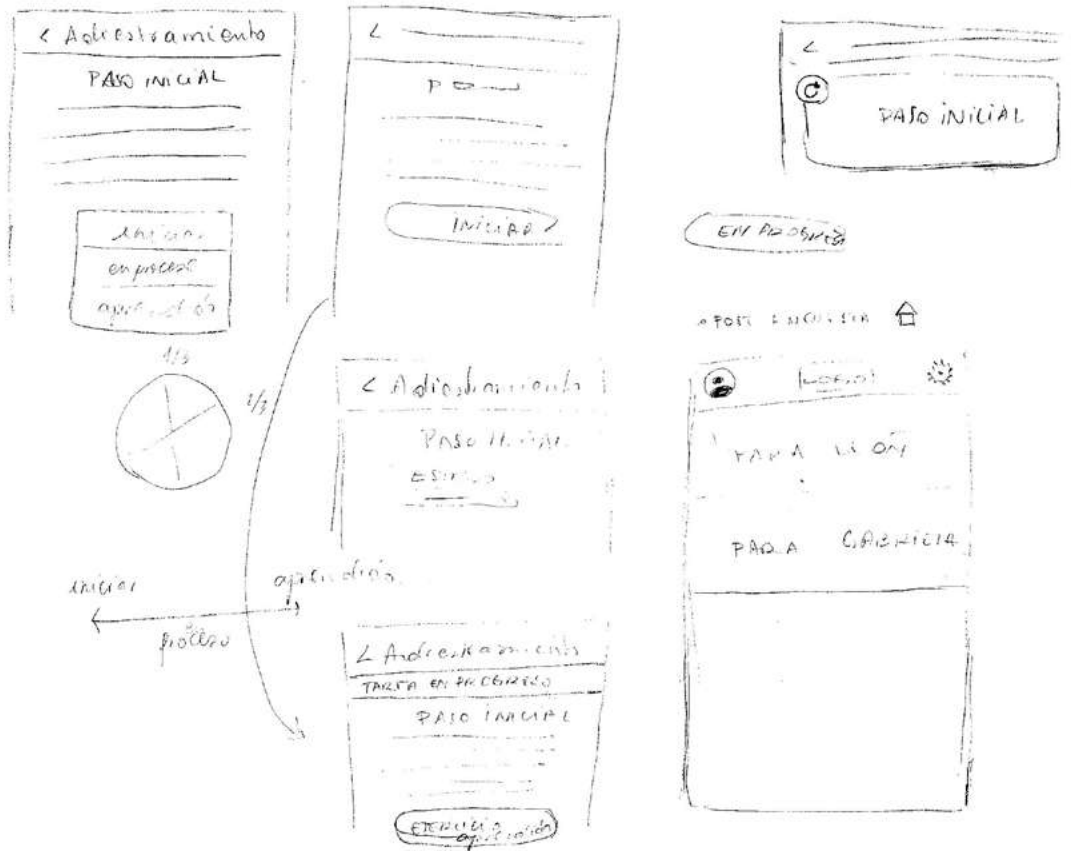 < Adiestramiento
PASO INICIAL
iniciar
en proceso
aprendión
1/3
2/3
iniciar
proceso
aprendión
<
INICIAR
< Adiestramiento
PASO INICIAL
< Adiestramiento
TAREA EN PROGRESO
PASO INICIAL
EJERCICIO
<
PASO INICIAL
POST ENCUESTA
LOGO
PARA
PARA GABRIELA